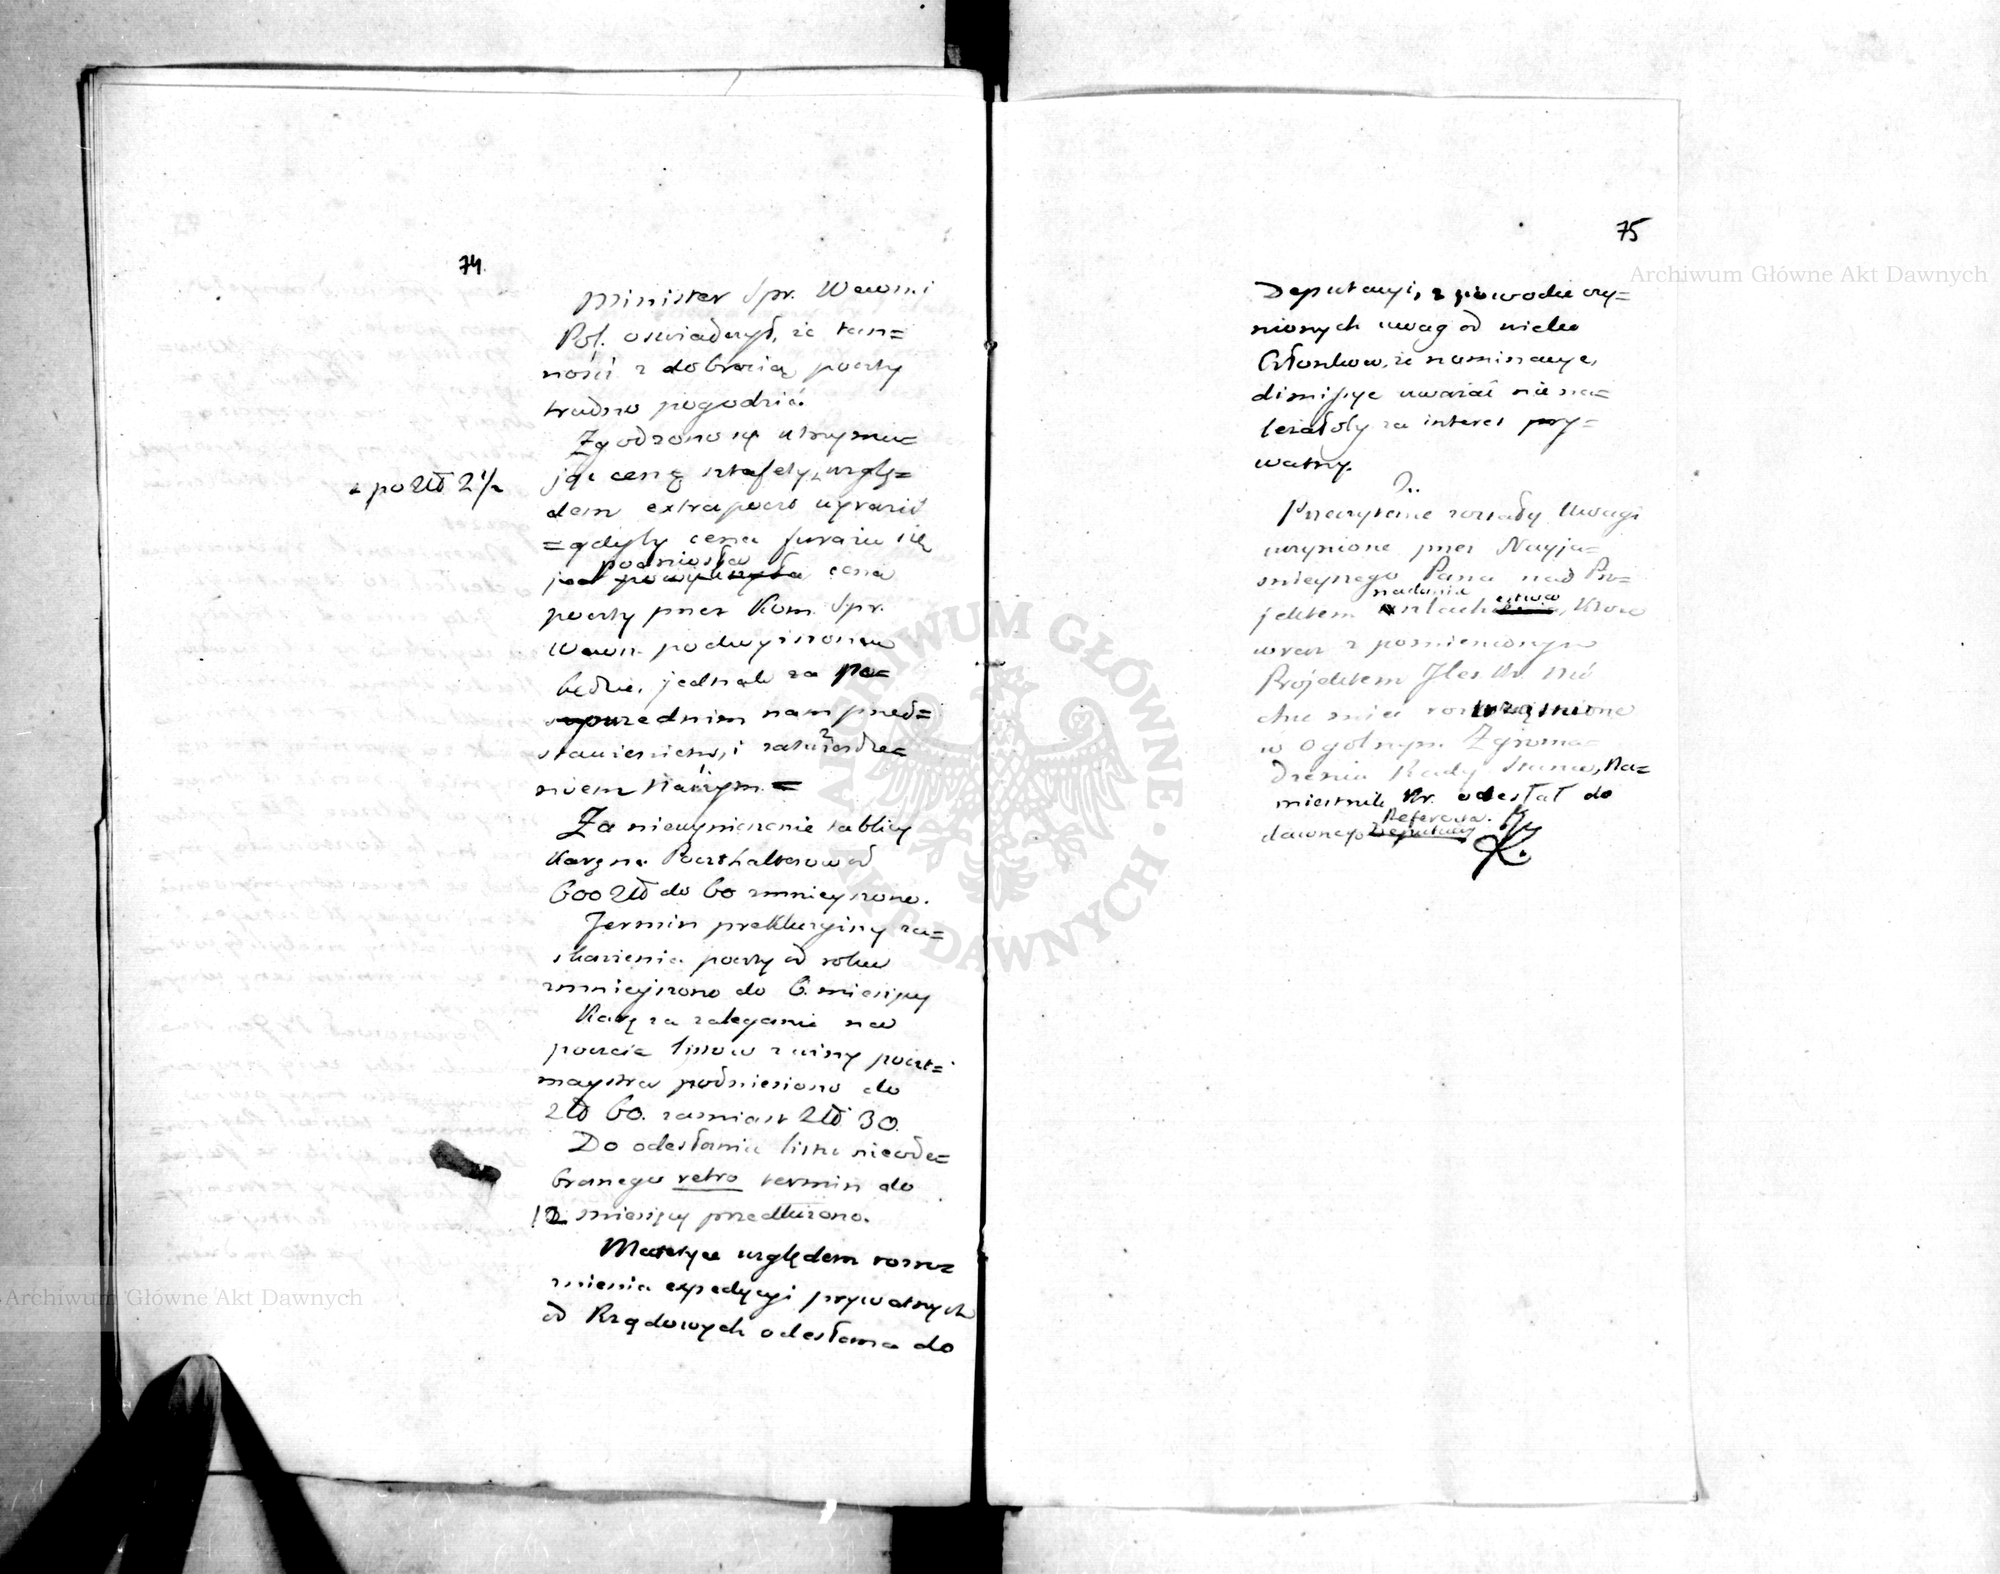 74
Minister Spr. Wewn. i
Pol. oswiadczył, że tan=
ności z dobrocią poczty
trudno pogodzić.
Zgodzono się utrzymu=
jąc cenę sztafety, wzglę=
z po Złł 2 1/2
dem extrapoczt wyrazić
=gdyby cena furażu się
podniosła
cena
poczty przez Kom. Spr.
Wewn. podwyższona
będzie, jednak za po=
przednim nam przed=
stawieniem, i zatwierdze=
niem Naszym. =
Za niewymienienie tablicy
karę na Poczthalterow od
600 Złł do 60 zmnieyszono.
Termin prekluzyiny za=
skarżenia poczty od roku
zmnieyszono do 6. miesięcy
Karę za zaleganie na
poczcie listow z winy poczt=
maystra podniesiono do
Złł 60. zamiast Złł 30.
Do odesłania listu nieode=
branego retro termin do
12 miesięcy przedłużono.
Materya względem rozró=
żnienia expedycyi prywatnych
od Rządowych odesłana do
75
Deputacyi, z powodu czy=
nionych uwag od wielu
Członkow, że nominacye,
dimissye uważać nie na=
leżałoby za interes pry=
watny.
2.
Przeczytane zostały Uwagi
uczynione przez Nayja=
śnieyszego Pana nad Pro=
jektem
nadania
szlachectwa, które
wraz z pomienionym
Projektem
roztrząśnione
w Ogolnym Zgroma=
dzeniu Rady Stanu, Na=
miestnik Kr. odesłał do
Referenta.
dawnego Deputacyi